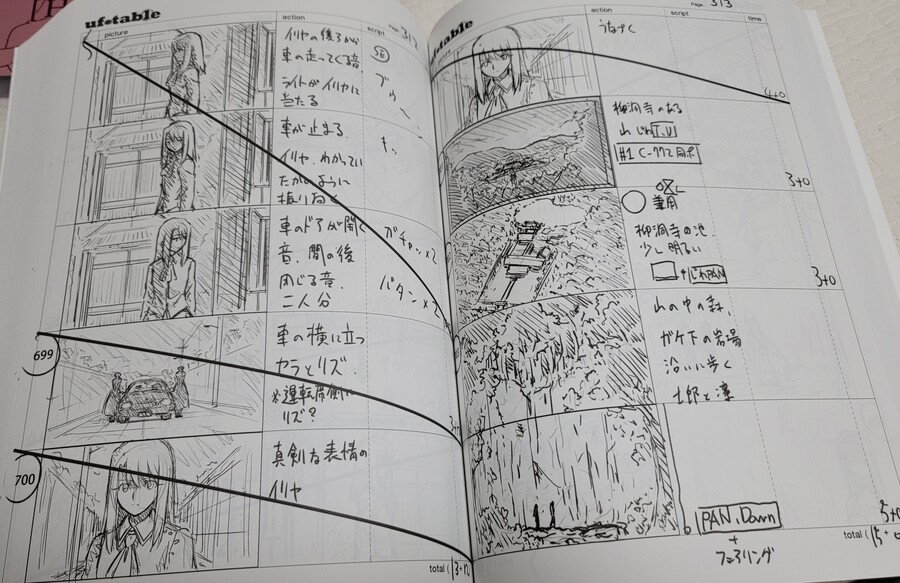 ufotable
picture
action
script
Page 312
イリヤの後ろから
車の走ってくる音
ライトがイリヤに
当たる
SE
ブゥー
車が止まる
キッ
イリヤ、わかってい
たかのように
振り向く
車のドアが開く
音、間の後
閉じる音、
二人分
ガチャン×2
バタン×2
699
車の横に立つ
セラとリズ
※運転席側に
リズ?
700
真剣な表情の
イリヤ
total (13+12
ufotable
action
script
Page 313
time
うなづく
4+0
柳洞寺のある
山 じわT.U
#1 C-772 同ポ
3+0
兼用
柳洞寺の池、
少し明るい
+じわPAN
3+0
山の中の森、
ガケ下の岩場
沿いに歩く
士郎と凛
PAN.Down
+
フェアリング
5+0
total (15+0